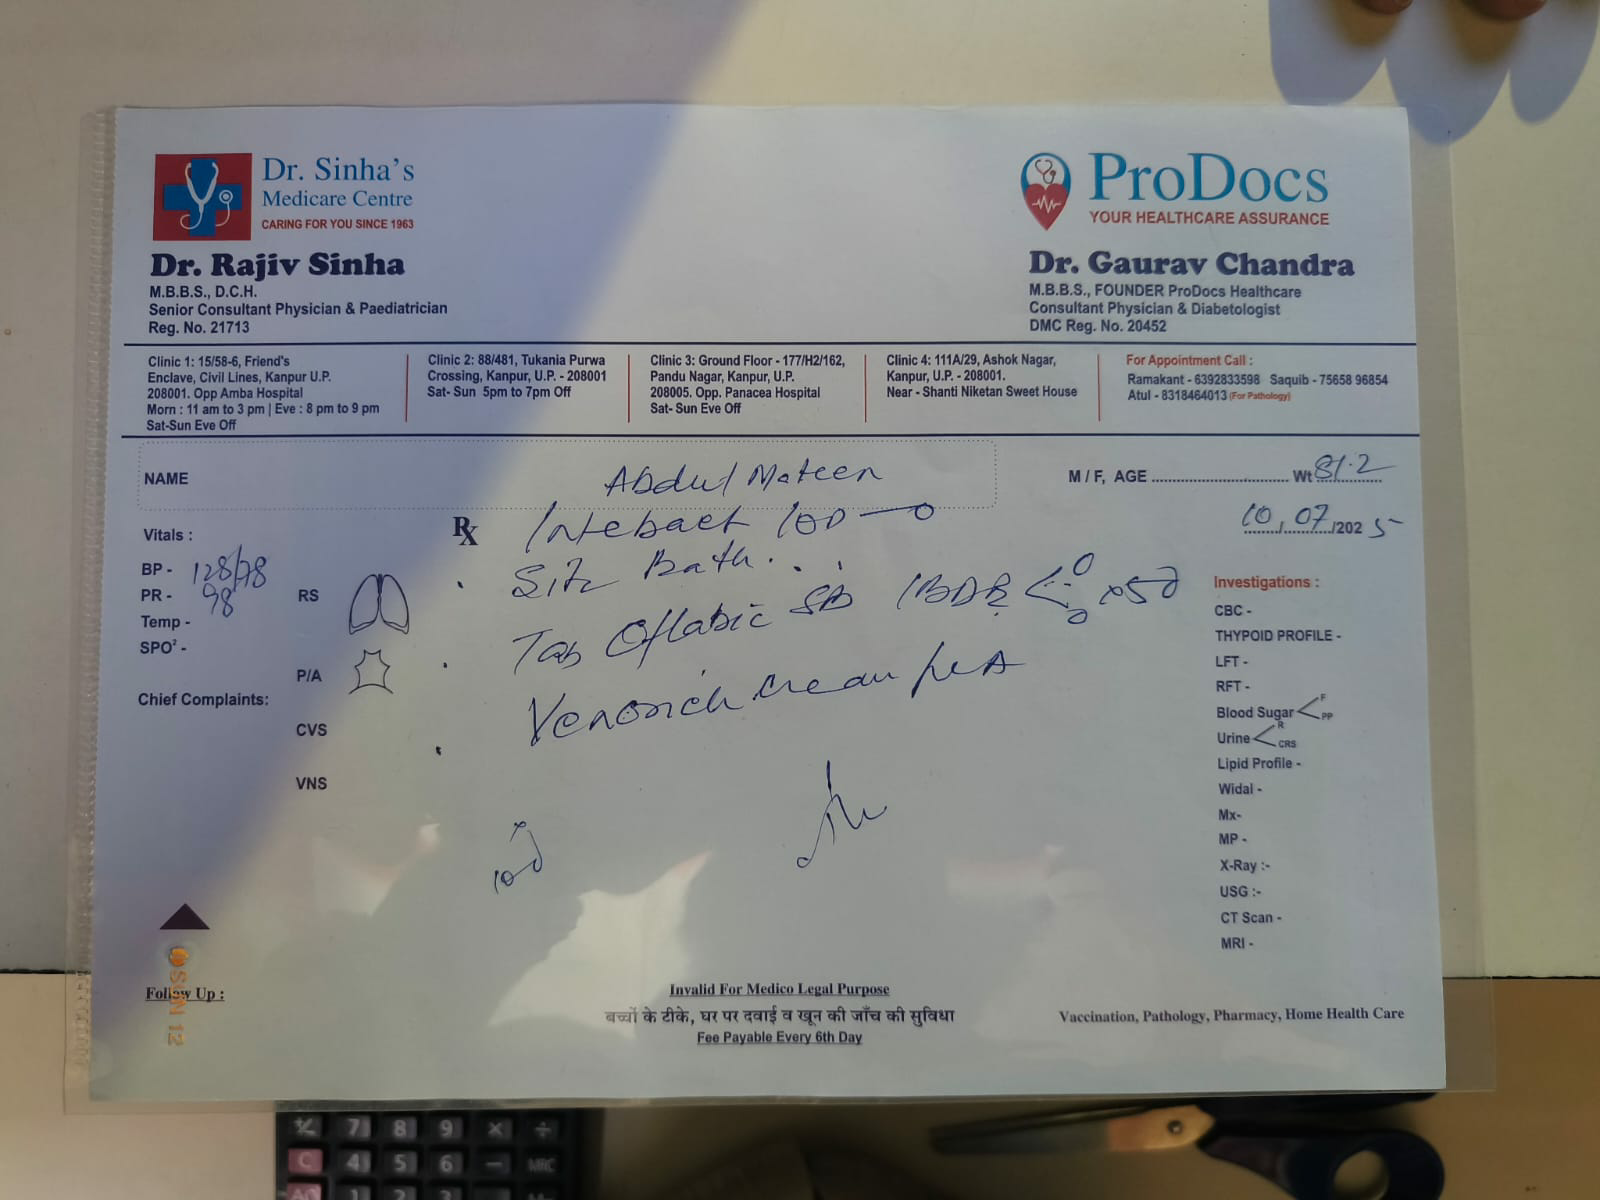 Dr. Sinha's
Medicare Centre
CARING FOR YOU SINCE 1963
Dr. Rajiv Sinha
M.B.B.S., D.C.H.
Senior Consultant Physician & Paediatrician
Reg. No. 21713
ProDocs
YOUR HEALTHCARE ASSURANCE
Dr. Gaurav Chandra
M.B.B.S., FOUNDER ProDocs Healthcare
Consultant Physician & Diabetologist
DMC Reg. No. 20452
Clinic 1: 15/58-6, Friend's
Enclave, Civil Lines, Kanpur U.P.
208001. Opp Amba Hospital
Morn : 11 am to 3 pm | Eve : 8 pm to 9 pm
Sat-Sun Eve Off
Clinic 2: 88/481, Tukania Purwa
Crossing, Kanpur, U.P. - 208001
Sat- Sun 5pm to 7pm Off
Clinic 3: Ground Floor - 177/H2/162,
Pandu Nagar, Kanpur, U.P.
208005. Opp. Panacea Hospital
Sat- Sun Eve Off
Clinic 4: 111A/29, Ashok Nagar,
Kanpur, U.P. - 208001.
Near - Shanti Niketan Sweet House
For Appointment Call :
Ramakant - 6392833598 Saquib - 75658 96854
Atul - 8318464013 (For Pathology)
NAME Abdul Mateen
M / F, AGE Wt 81.2
10/07/2025
Vitals :
BP - 128/78
PR - 98
Temp -
SPO² -
Chief Complaints:
RS
P/A
CVS
VNS
Rx
Sitz Bath
Tab Oflabic
cream
Investigations :
CBC -
THYPOID PROFILE -
LFT -
RFT -
Blood Sugar F PP
Urine R CRS
Lipid Profile -
Widal -
Mx-
MP -
X-Ray :-
USG :-
CT Scan -
MRI -
Follow Up :
SUN 12
Invalid For Medico Legal Purpose
बच्चों के टीके, घर पर दवाई व खून की जाँच की सुविधा
Fee Payable Every 6th Day
Vaccination, Pathology, Pharmacy, Home Health Care
7 8 9 × ÷
C 4 5 6 − MRC